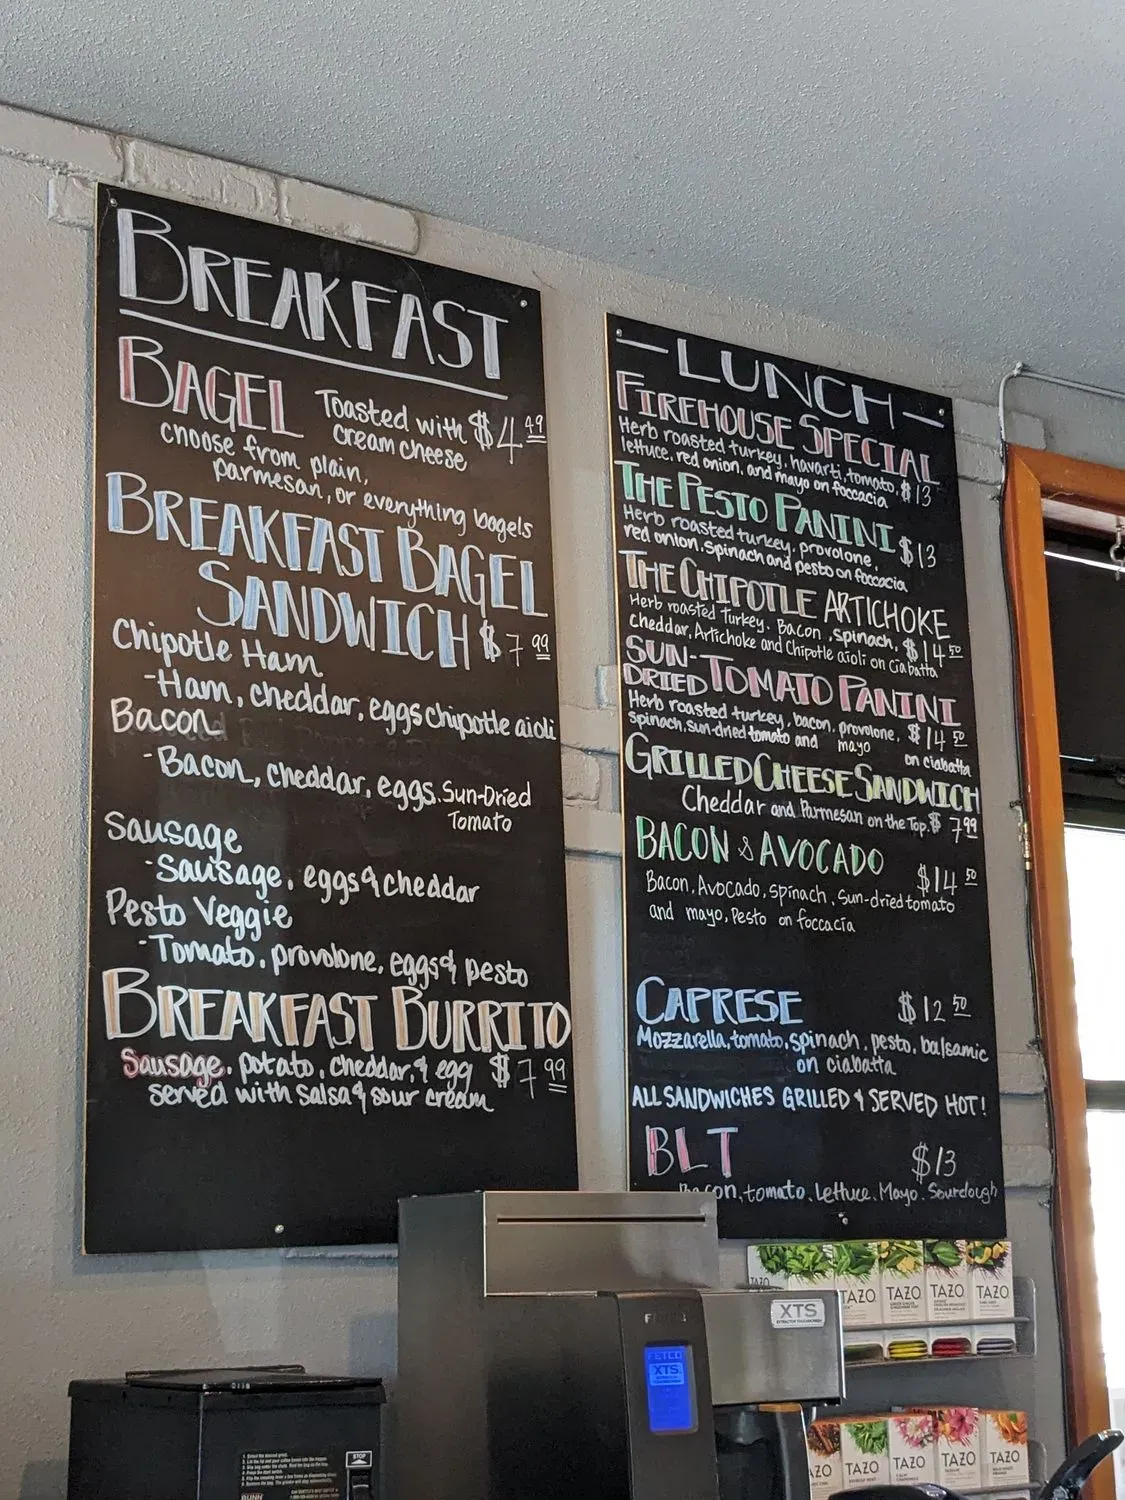 BREAKFAST
BAGEL Toasted with $4.49
cream cheese
choose from plain,
parmesan, or everything bagels
BREAKFAST BAGEL
SANDWICH $7.99
Chipotle Ham
-Ham, cheddar, eggs chipotle aioli
Bacon
-Bacon, cheddar, eggs. Sun-Dried
Tomato
Sausage
-Sausage, eggs & cheddar
Pesto Veggie
-Tomato, provolone, eggs & pesto
BREAKFAST BURRITO
Sausage, potato, cheddar, & egg $7.99
served with salsa & sour cream
-LUNCH-
FIREHOUSE SPECIAL
Herb roasted turkey, havarti, tomato,
lettuce, red onion, and mayo on foccacia $13
THE PESTO PANINI
Herb roasted turkey, provolone, $13
red onion, spinach and pesto on foccacia
THE CHIPOTLE ARTICHOKE
Herb roasted Turkey, Bacon, spinach, $14.50
cheddar, Artichoke and Chipotle aioli on ciabatta
SUN-DRIED TOMATO PANINI
Herb roasted turkey, bacon, provolone, $14.50
spinach, sun-dried tomato and mayo
on ciabatta
GRILLED CHEESE SANDWICH
Cheddar and Parmesan on the Top. $7.99
BACON & AVOCADO $14.50
Bacon, Avocado, spinach, sun-dried tomato
and mayo, Pesto on foccacia
CAPRESE $12.50
Mozzarella, tomato, spinach, pesto, balsamic
on ciabatta
ALL SANDWICHES GRILLED & SERVED HOT!
BLT $13
Bacon, tomato, Lettuce, Mayo, Sourdough
TAZO TAZO TAZO TAZO TAZO
XTS
FETCO
XTS
STOP
TAZO TAZO TAZO TAZO
BUNN